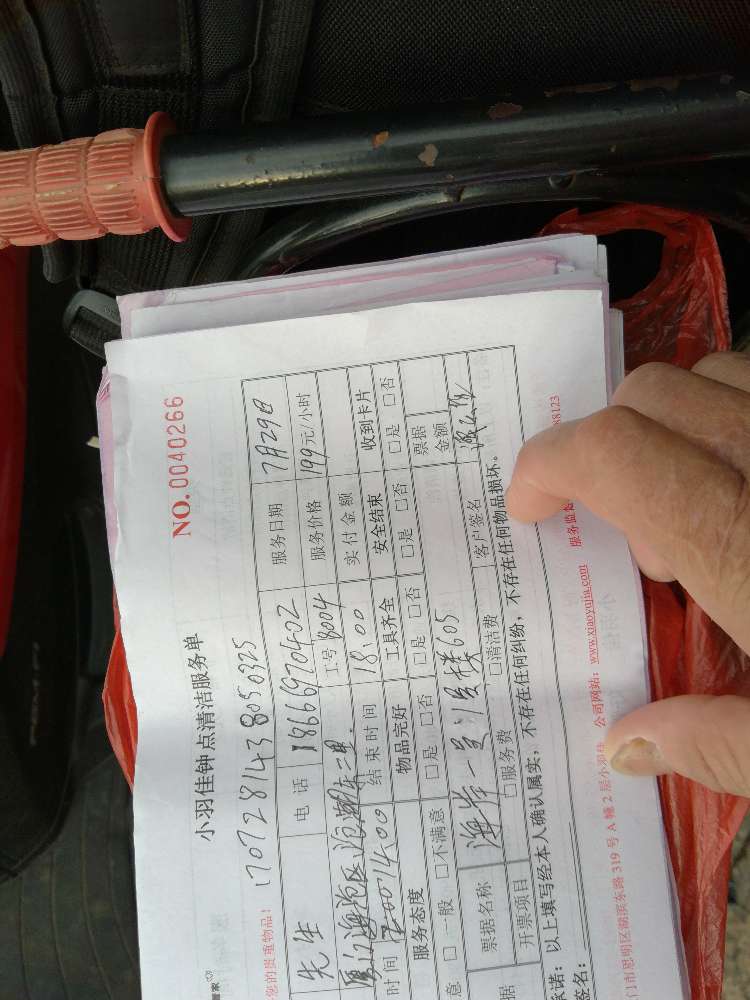 NO.0040266
小羽佳钟点清洁服务单
管家
您的贵重物品！
先生 电话 18666970402 服务日期 7月29日
工号 8004 服务价格 199元/小时
时间 14:00 结束时间 18:00 实付金额
服务态度 物品完好 工具齐全 安全结束 收到卡片
意 □一般 □不满意 □是 □否 □是 □否 □是 □否 □是 □否
票据名称 海岸一号 605 票据金额
据 开票项目 □服务费 □清洁费 客户签名
承诺：以上填写经本人确认属实，不存在任何纠纷，不存在任何物品损坏。
签名：
门市思明区湖滨东路319号A幢2层小羽佳 公司网站：www.xiaoyujia.com 服务监 88123